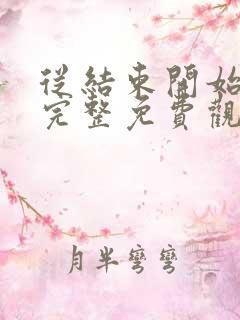 從結束開始
完整免費觀
月半彎彎